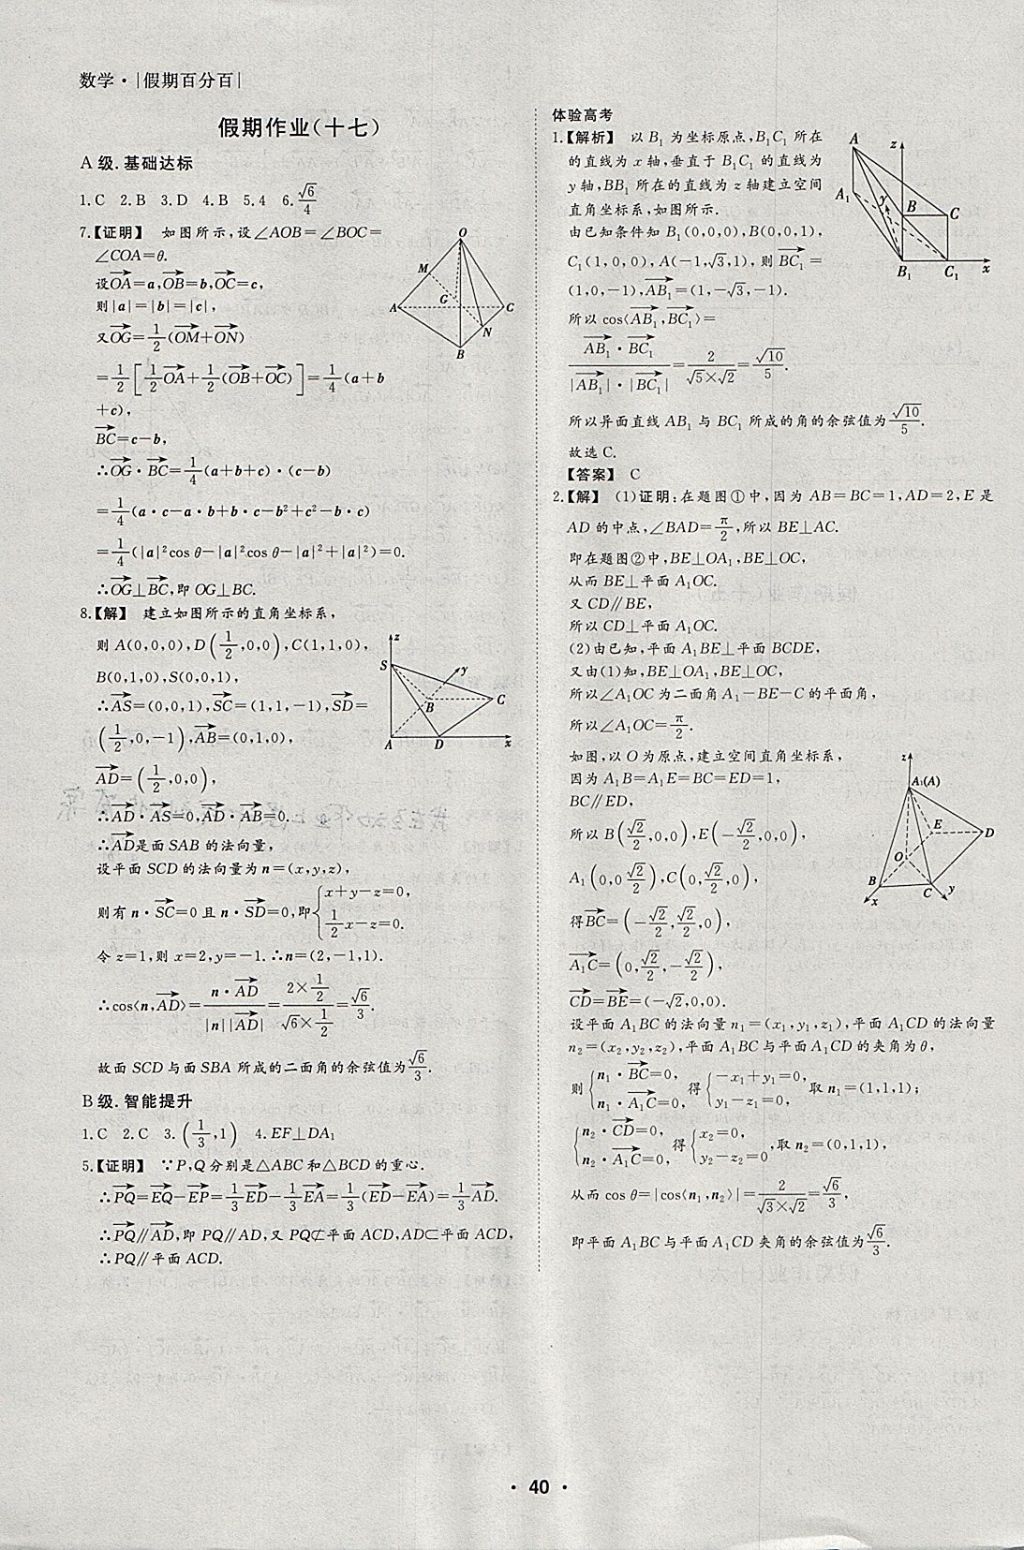 数学·|假期百分百|
假期作业(十七)
A 级.基础达标
1.C 2.B 3.D 4.B 5.4 6.√6/4
7.【证明】 如图所示,设∠AOB=∠BOC=
∠COA=θ.
设OA→=a,OB→=b,OC→=c,
则|a|=|b|=|c|,
又OG→=1/2(OM→+ON→)
=1/2[1/2OA→+1/2(OB→+OC→)]=1/4(a+b
+c),
BC→=c-b,
∴OG→·BC→=1/4(a+b+c)·(c-b)
=1/4(a·c-a·b+b·c-b²+c²-b·c)
=1/4(|a|²cos θ-|a|²cos θ-|a|²+|a|²)=0.
∴OG→⊥BC→,即 OG⊥BC.
O
M
G
A
C
N
B
8.【解】 建立如图所示的直角坐标系,
则 A(0,0,0),D(1/2,0,0),C(1,1,0),
B(0,1,0),S(0,0,1),
∴AS→=(0,0,1),SC→=(1,1,-1),SD→=
(1/2,0,-1),AB→=(0,1,0),
AD→=(1/2,0,0),
∴AD→·AS→=0,AD→·AB→=0.
∴AD→是面 SAB 的法向量,
设平面 SCD 的法向量为 n=(x,y,z),
则有 n·SC→=0 且 n·SD→=0,即{x+y-z=0,
1/2x-z=0.
令 z=1,则 x=2,y=-1.∴n=(2,-1,1).
∴cos⟨n,AD→⟩=n·AD→/|n||AD→|=(2×1/2)/(√6×1/2)=√6/3.
故面 SCD 与面 SBA 所成的二面角的余弦值为√6/3.
z
S
y
B
C
A
D
x
B 级.智能提升
1.C 2.C 3.(1/3,1) 4.EF⊥DA₁
5.【证明】 ∵P,Q 分别是△ABC 和△BCD 的重心.
∴PQ→=EQ→-EP→=1/3ED→-1/3EA→=1/3(ED→-EA→)=1/3AD→.
∴PQ→∥AD→,即 PQ∥AD,又 PQ⊄平面 ACD,AD⊂平面 ACD,
∴PQ∥平面 ACD.
体验高考
1.【解析】 以 B₁ 为坐标原点,B₁C₁ 所在
的直线为 x 轴,垂直于 B₁C₁ 的直线为
y 轴,BB₁ 所在的直线为 z 轴建立空间
直角坐标系,如图所示.
由已知条件知 B₁(0,0,0),B(0,0,1),
C₁(1,0,0),A(-1,√3,1),则BC₁→=
(1,0,-1),AB₁→=(1,-√3,-1).
所以 cos⟨AB₁→,BC₁→⟩=
AB₁→·BC₁→/|AB₁→|·|BC₁→|=2/(√5×√2)=√10/5.
所以异面直线 AB₁ 与 BC₁ 所成的角的余弦值为√10/5.
故选 C.
【答案】 C
A
z
A₁
y
B
C
B₁
C₁
x
2.【解】 (1)证明:在题图①中,因为 AB=BC=1,AD=2,E 是
AD 的中点,∠BAD=π/2,所以 BE⊥AC.
即在题图②中,BE⊥OA₁,BE⊥OC,
从而 BE⊥平面 A₁OC.
又 CD∥BE,
所以 CD⊥平面 A₁OC.
(2)由已知,平面 A₁BE⊥平面 BCDE,
又由(1)知,BE⊥OA₁,BE⊥OC,
所以∠A₁OC 为二面角 A₁-BE-C 的平面角,
所以∠A₁OC=π/2.
如图,以 O 为原点,建立空间直角坐标系,
因为 A₁B=A₁E=BC=ED=1,
BC∥ED,
所以 B(√2/2,0,0),E(-√2/2,0,0),
A₁(0,0,√2/2),C(0,√2/2,0),
得BC→=(-√2/2,√2/2,0),
A₁C→=(0,√2/2,-√2/2),
CD→=BE→=(-√2,0,0).
设平面 A₁BC 的法向量 n₁=(x₁,y₁,z₁),平面 A₁CD 的法向量
n₂=(x₂,y₂,z₂),平面 A₁BC 与平面 A₁CD 的夹角为 θ,
则{n₁·BC→=0, n₁·A₁C→=0, 得{-x₁+y₁=0, y₁-z₁=0, 取 n₁=(1,1,1);
{n₂·CD→=0, n₂·A₁C→=0, 得{x₂=0, y₂-z₂=0, 取 n₂=(0,1,1),
从而 cos θ=|cos⟨n₁,n₂⟩|=2/(√3×√2)=√6/3,
即平面 A₁BC 与平面 A₁CD 夹角的余弦值为√6/3.
z
A₁(A)
E
D
O
B
C
x
y
· 40 ·